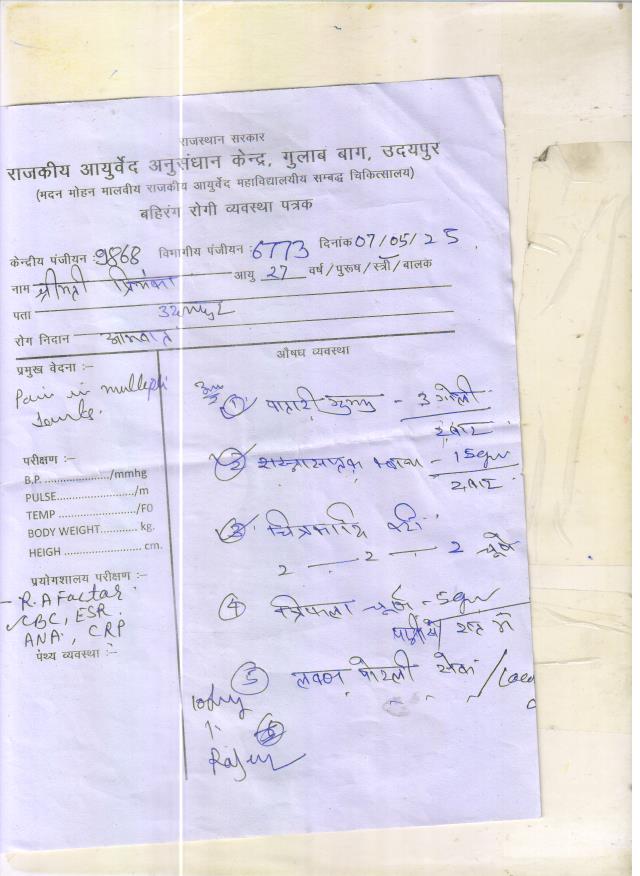 राजस्थान सरकार
राजकीय आयुर्वेद अनुसंधान केन्द्र, गुलाब बाग, उदयपुर
(मदन मोहन मालवीय राजकीय आयुर्वेद महाविद्यालयीय सम्बद्ध चिकित्सालय)
बहिरंग रोगी व्यवस्था पत्रक
केन्दीय पंजीयन :9868 विभागीय पंजीयन :6773 दिनांक 07/05/25
नाम श्रीमती प्रियंका आयु 27 वर्ष/पुरूष/स्त्री/बालक
पता उदयपुर
रोग निदान आमवात
प्रमुख वेदना :-
औषध व्यवस्था
Pain in multiple
Joints.
① - 3 गोली
2 बार
② क्वाथ - 15gm
2 बार
परीक्षण :-
B.P. ..................../mmhg
PULSE......................../m
TEMP ......................./F0
BODY WEIGHT.......... kg.
HEIGH ..................... cm.
③ चित्रकादि वटी
2 — 2 — 2 चूसे
प्रयोगशालय परीक्षण :-
- R.A Factor.
CBC, ESR.
ANA, CRP
④ त्रिफला चूर्ण - 5gm
रात में
पंथ्य व्यवस्था :-
⑤ लवण पोटली सेक /